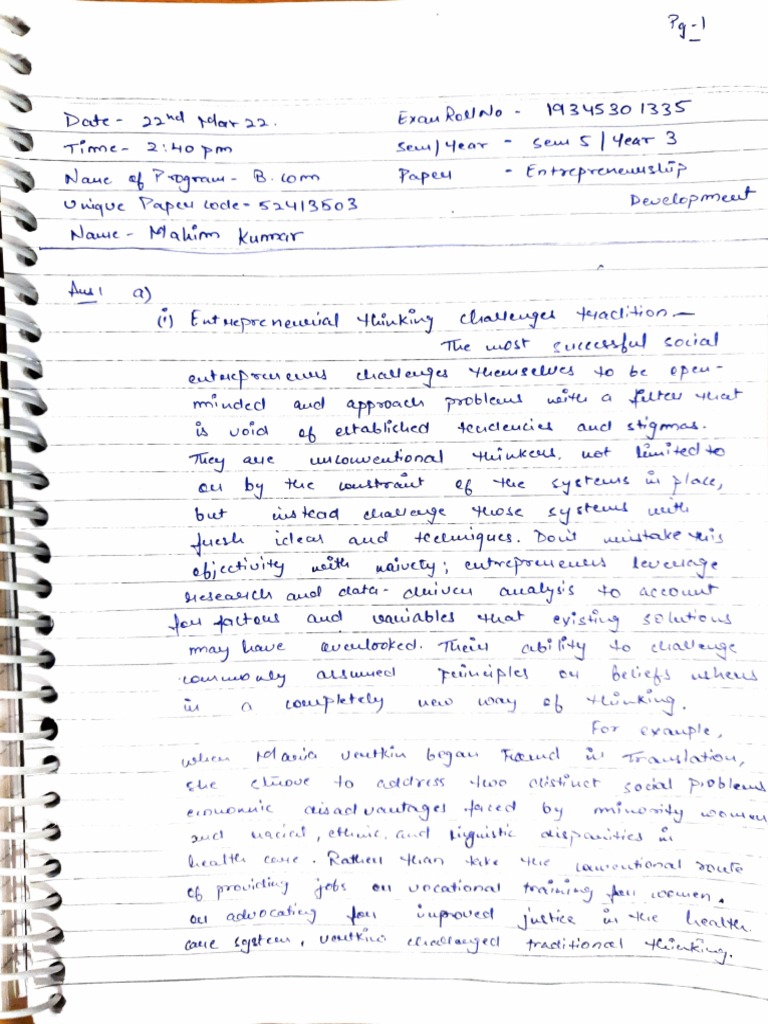 Pg-1
Date- 22nd Mar 22. Exam Roll No - 19345301335
Time- 2:40 pm Sem/Year - Sem 5 / Year 3
Name of Program- B.com Paper - Entrepreneurship
Unique Paper code- 52413503 Development
Name- Mahim Kumar
Ans 1 a)
(i) Entrepreneurial thinking challenges tradition.-
The most successful social
entrepreneurs challenges themselves to be open-
minded and approach problems with a filter that
is void of established tendencies and stigmas.
They are unconventional thinkers, not limited to
or by the constraint of the systems in place,
but instead challenge those systems with
fresh ideas and techniques. Don't mistake this
objectivity with naivety; entrepreneurs leverage
research and data-driven analysis to account
for factors and variables that existing solutions
may have overlooked. Their ability to challenge
commonly assumed principles or beliefs ushers
in a completely new way of thinking.
For example,
when Maria Vertkin began Found in Translation,
she strove to address two distinct social problems
economic disadvantages faced by minority women
and racial, ethnic, and linguistic disparities in
health care. Rather than take the conventional route
of providing jobs or vocational training for women,
or advocating for improved justice in the health
care system, Vertkin challenged traditional thinking.